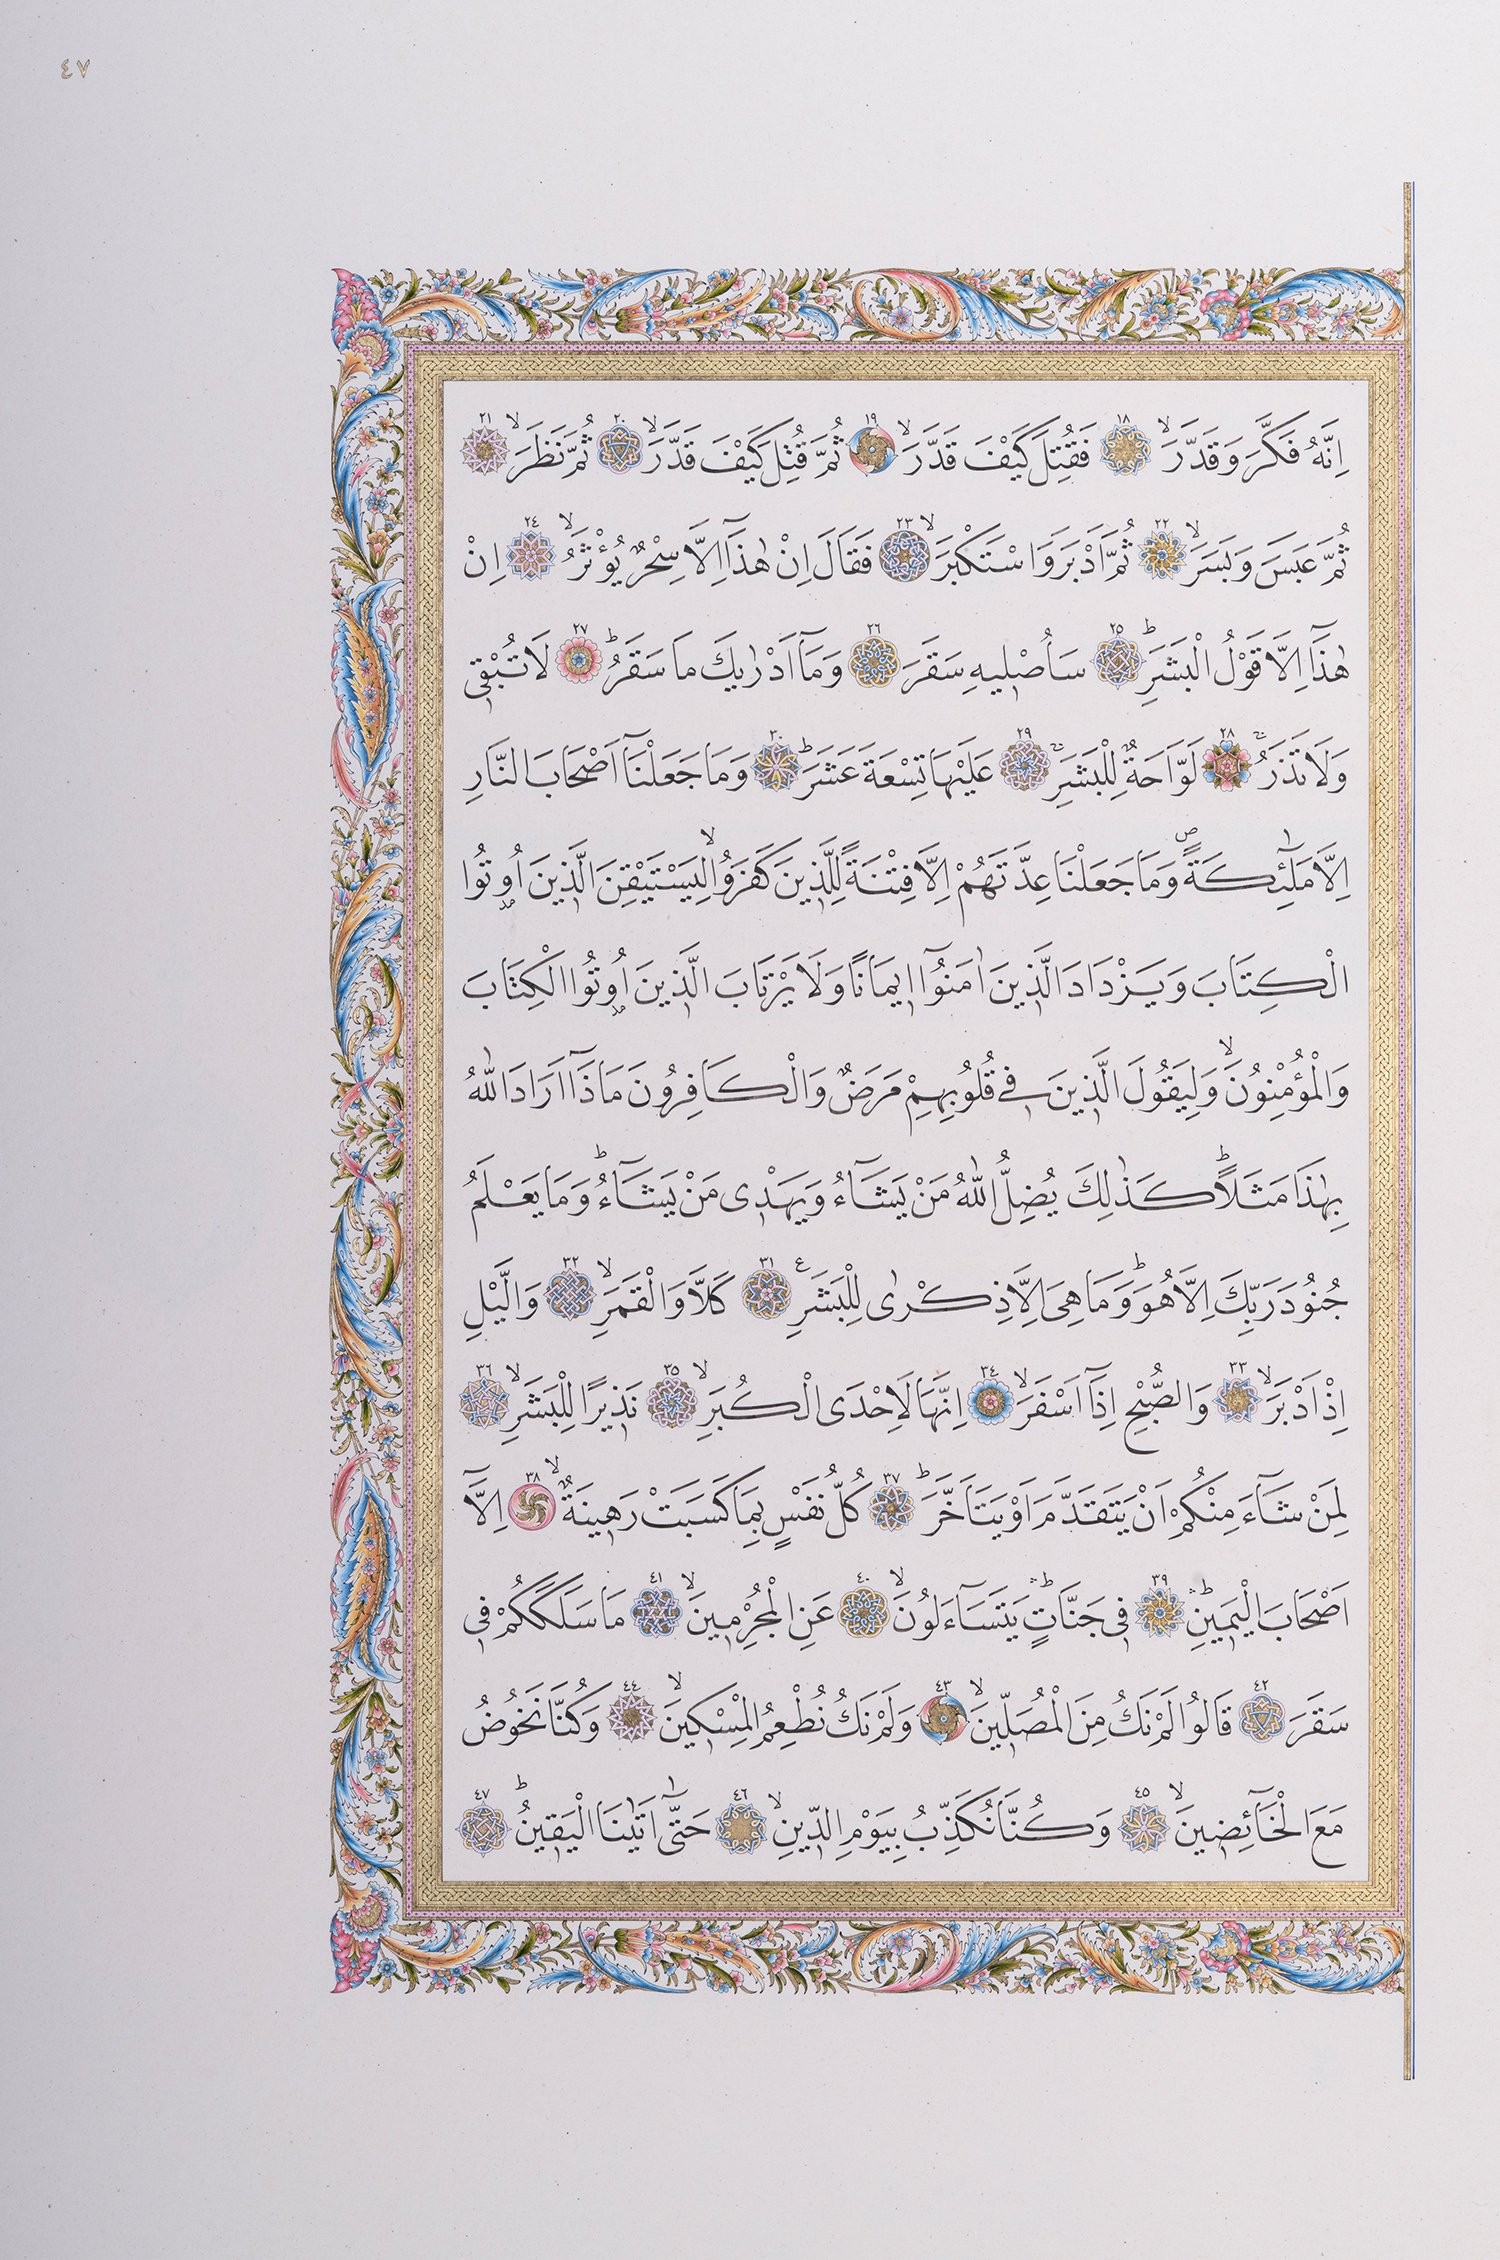 ٤٧
اِنَّهُ فَكَّرَ وَقَدَّرَۙ ١٨ فَقُتِلَ كَيْفَ قَدَّرَۙ ١٩ ثُمَّ قُتِلَ كَيْفَ قَدَّرَۙ ٢٠ ثُمَّ نَظَرَۙ ٢١
ثُمَّ عَبَسَ وَبَسَرَۙ ٢٢ ثُمَّ اَدْبَرَ وَاسْتَكْبَرَۙ ٢٣ فَقَالَ اِنْ هٰذَٓا اِلَّا سِحْرٌ يُؤْثَرُۙ ٢٤ اِنْ
هٰذَٓا اِلَّا قَوْلُ الْبَشَرِۜ ٢٥ سَاُصْلِيهِ سَقَرَ ٢٦ وَمَٓا اَدْرٰيكَ مَا سَقَرُۜ ٢٧ لَا تُبْقِي
وَلَا تَذَرُۚ ٢٨ لَوَّاحَةٌ لِلْبَشَرِۚ ٢٩ عَلَيْهَا تِسْعَةَ عَشَرَۜ ٣٠ وَمَا جَعَلْنَٓا اَصْحَابَ النَّارِ
اِلَّا مَلٰٓئِكَةًۖ وَمَا جَعَلْنَا عِدَّتَهُمْ اِلَّا فِتْنَةً لِلَّذِينَ كَفَرُواۙ لِيَسْتَيْقِنَ الَّذِينَ اُو۫تُوا
الْكِتَابَ وَيَزْدَادَ الَّذِينَ اٰمَنُٓوا اِيمَانًا وَلَا يَرْتَابَ الَّذِينَ اُو۫تُوا الْكِتَابَ
وَالْمُؤْمِنُونَۙ وَلِيَقُولَ الَّذِينَ فِي قُلُوبِهِمْ مَرَضٌ وَالْكَافِرُونَ مَاذَٓا اَرَادَ اللّٰهُ
بِهٰذَا مَثَلًاۜ كَذٰلِكَ يُضِلُّ اللّٰهُ مَنْ يَشَٓاءُ وَيَهْدِي مَنْ يَشَٓاءُۜ وَمَا يَعْلَمُ
جُنُودَ رَبِّكَ اِلَّا هُوَۜ وَمَا هِيَ اِلَّا ذِكْرٰى لِلْبَشَرِ ع ٣١ كَلَّا وَالْقَمَرِۙ ٣٢ وَالَّيْلِ
اِذْ اَدْبَرَۙ ٣٣ وَالصُّبْحِ اِذَٓا اَسْفَرَۙ ٣٤ اِنَّهَا لَاِحْدَى الْكُبَرِۙ ٣٥ نَذِيرًا لِلْبَشَرِۙ ٣٦
لِمَنْ شَٓاءَ مِنْكُمْ اَنْ يَتَقَدَّمَ اَوْ يَتَاَخَّرَۜ ٣٧ كُلُّ نَفْسٍ بِمَا كَسَبَتْ رَهِينَةٌۙ ٣٨ اِلَّٓا
اَصْحَابَ الْيَمِينِۜۛ ٣٩ فِي جَنَّاتٍۜۛ يَتَسَٓاءَلُونَۙ ٤٠ عَنِ الْمُجْرِمِينَۙ ٤١ مَا سَلَكَكُمْ فِي
سَقَرَ ٤٢ قَالُوا لَمْ نَكُ مِنَ الْمُصَلِّينَۙ ٤٣ وَلَمْ نَكُ نُطْعِمُ الْمِسْكِينَۙ ٤٤ وَكُنَّا نَخُوضُ
مَعَ الْخَٓائِضِينَۙ ٤٥ وَكُنَّا نُكَذِّبُ بِيَوْمِ الدِّينِۙ ٤٦ حَتّٰٓى اَتٰينَا الْيَقِينُۜ ٤٧